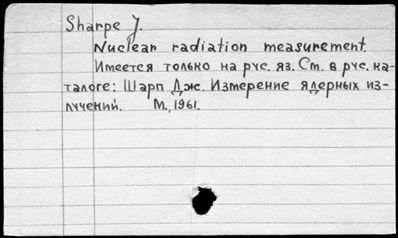 Sharpe J.
Nuclear radiation measurement.
Имеется только на рус. яз. См. в рус. ка-
талоге: Шарп Дж. Измерение ядерных из-
лучений. М., 1961.